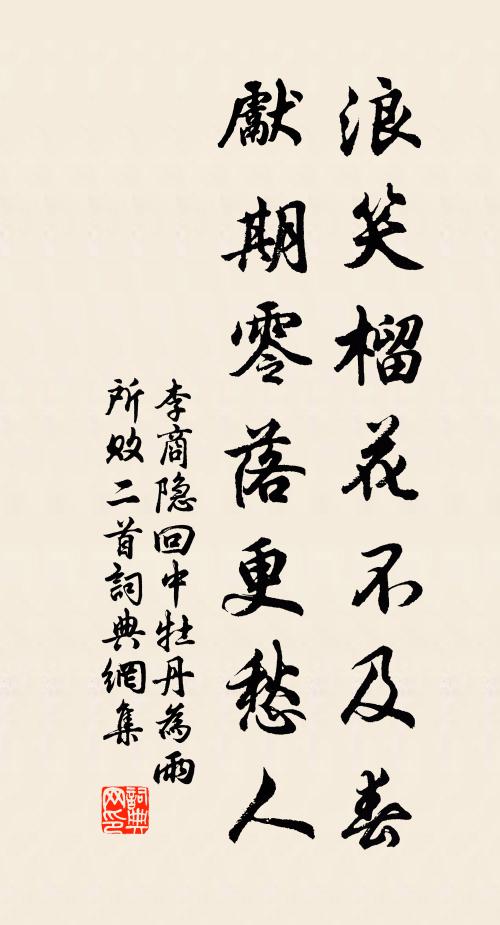 浪笑榴花不及春
獻期零落更愁人
李商隐回中牡丹為雨
所敗二首詞典網集
詞典
网印